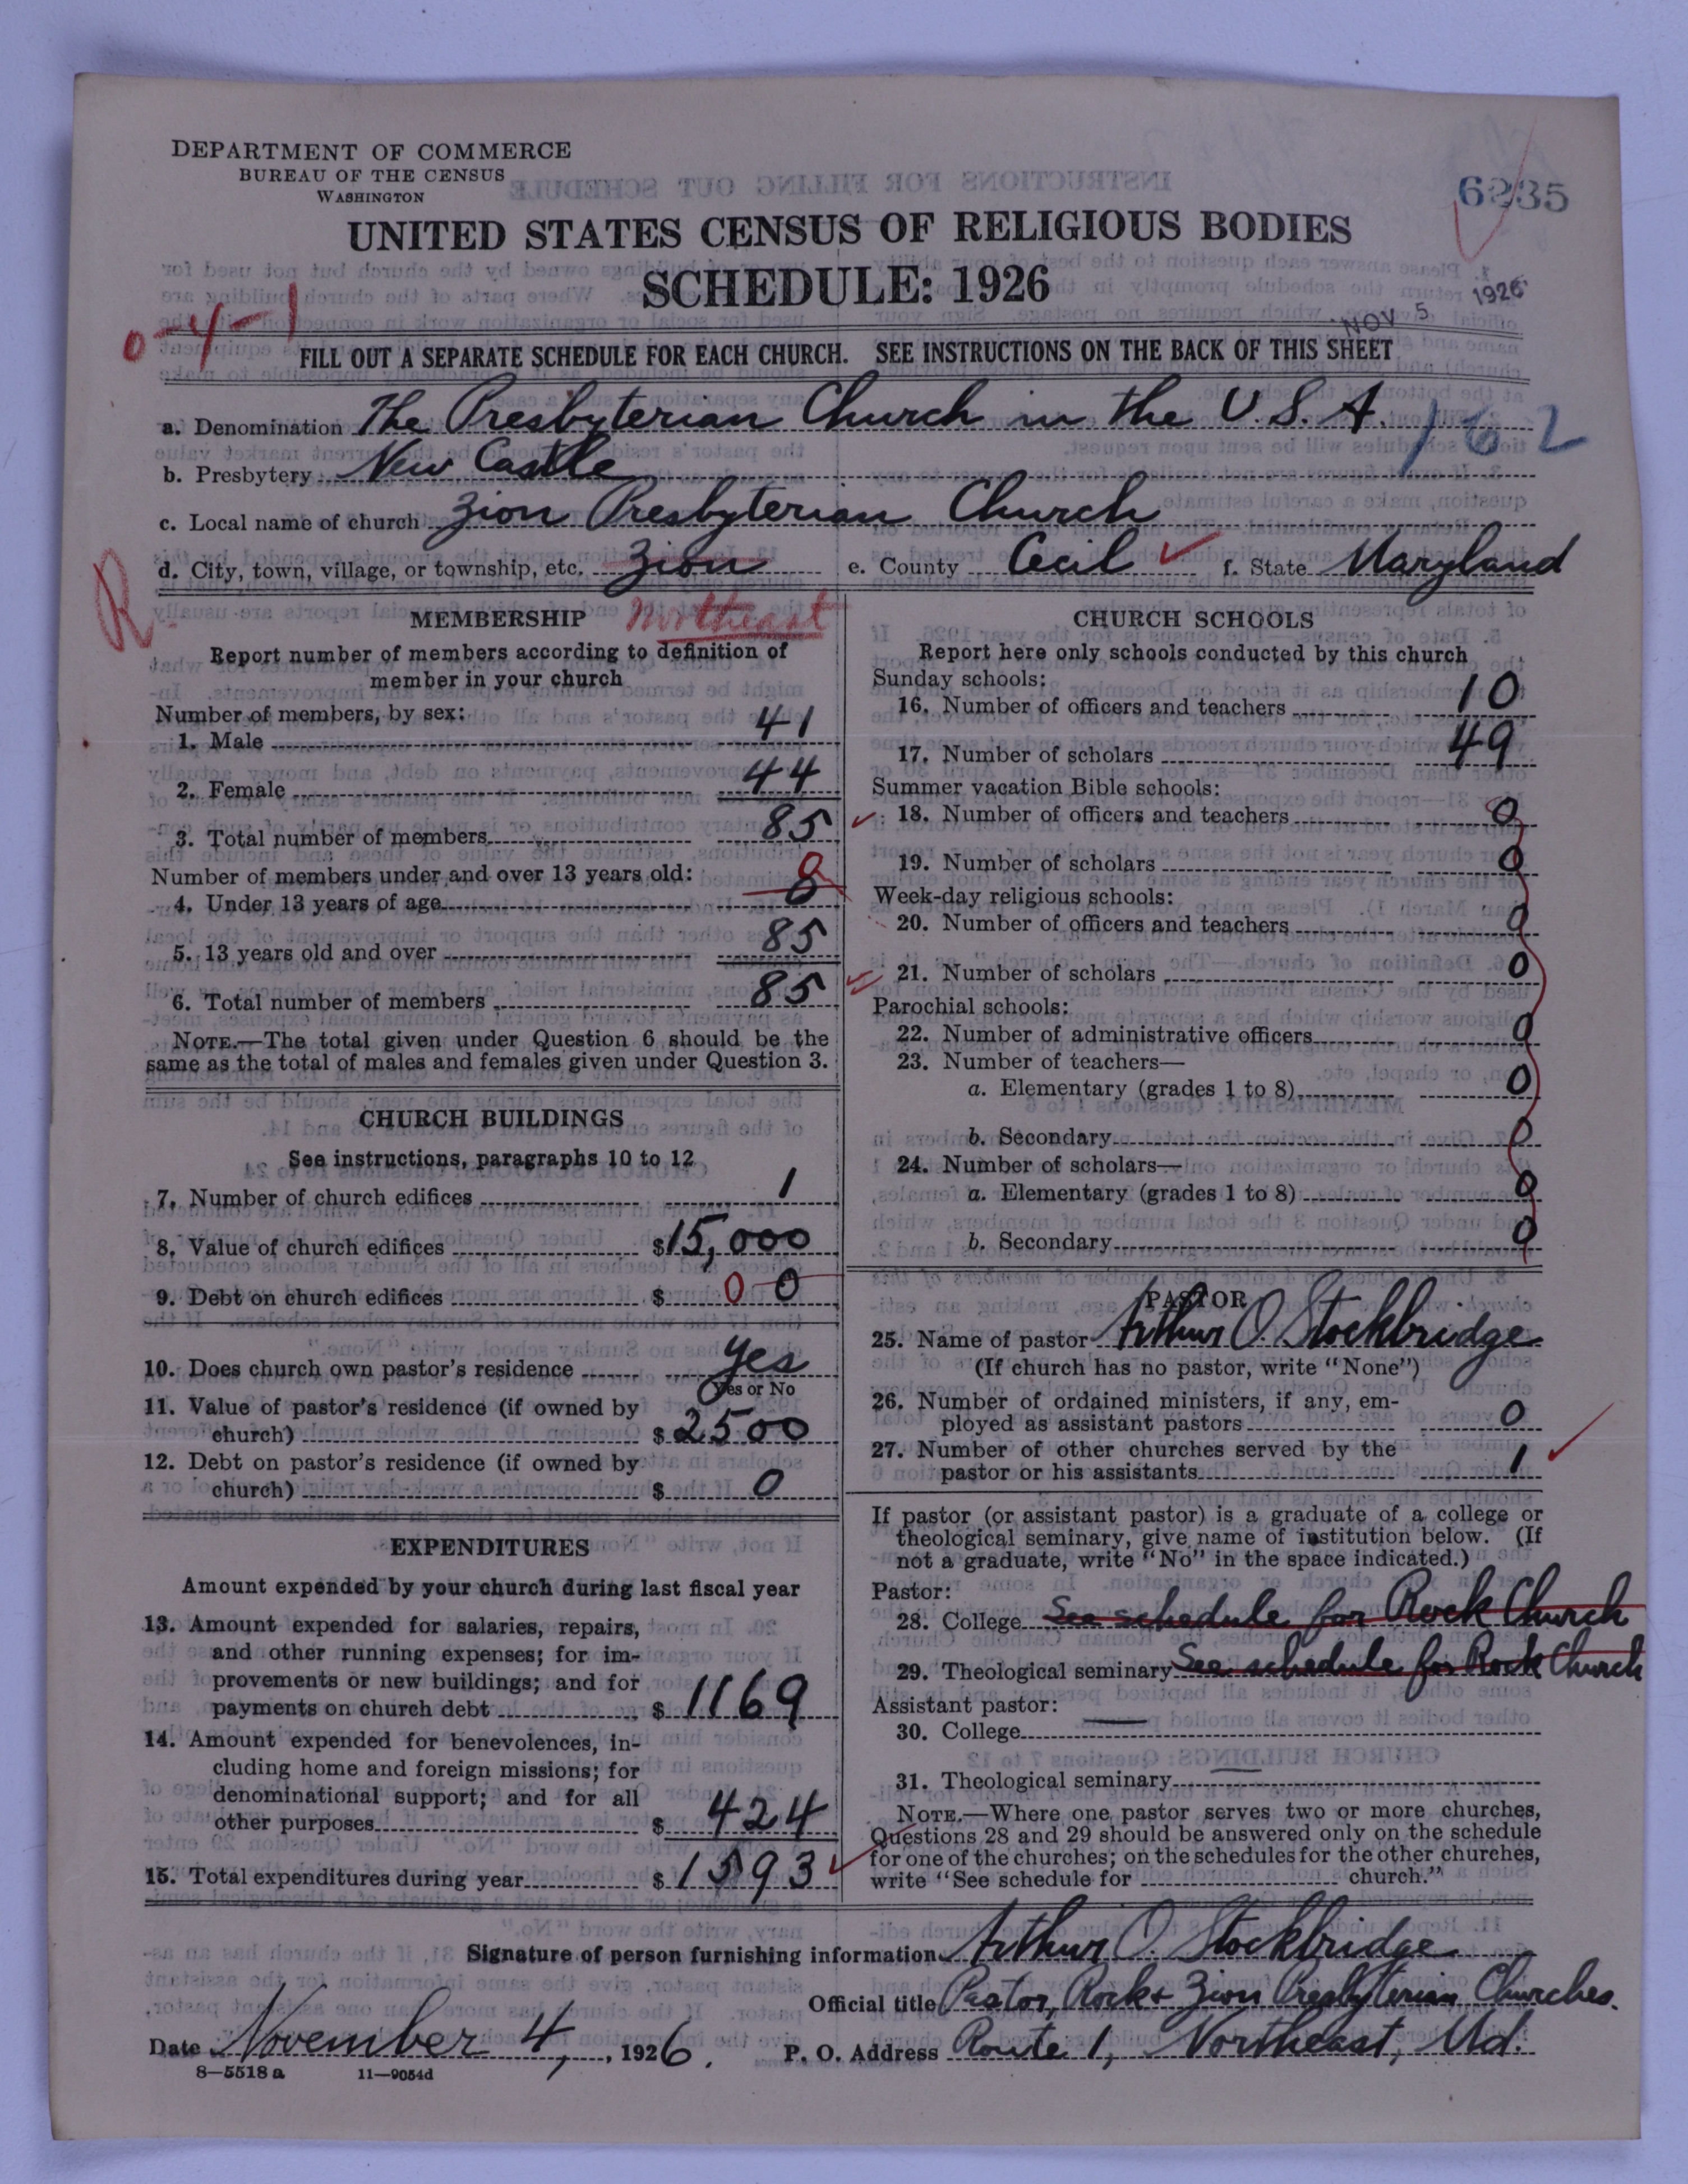 DEPARTMENT OF COMMERCE
BUREAU OF THE CENSUS
WASHINGTON
6235
UNITED STATES CENSUS OF RELIGIOUS BODIES
SCHEDULE: 1926
NOV 5 1926
0-4-1
FILL OUT A SEPARATE SCHEDULE FOR EACH CHURCH. SEE INSTRUCTIONS ON THE BACK OF THIS SHEET
a. Denomination The Presbyterian Church in the U.S.A. 162
b. Presbytery New Castle
c. Local name of church Zion Presbyterian Church
d. City, town, village, or township, etc. Zion e. County Cecil f. State Maryland
R
Northeast
MEMBERSHIP
Report number of members according to definition of
member in your church
Number of members, by sex:
1. Male 41
2. Female 44
3. Total number of members 85
Number of members under and over 13 years old:
4. Under 13 years of age 0
5. 13 years old and over 85
6. Total number of members 85
NOTE.—The total given under Question 6 should be the
same as the total of males and females given under Question 3.
CHURCH BUILDINGS
See instructions, paragraphs 10 to 12
7. Number of church edifices 1
8. Value of church edifices $15,000
9. Debt on church edifices $ 0 0
10. Does church own pastor's residence Yes
Yes or No
11. Value of pastor's residence (if owned by
church) $2500
12. Debt on pastor's residence (if owned by
church) $ 0
EXPENDITURES
Amount expended by your church during last fiscal year
13. Amount expended for salaries, repairs,
and other running expenses; for im-
provements or new buildings; and for
payments on church debt $1169
14. Amount expended for benevolences, in-
cluding home and foreign missions; for
denominational support; and for all
other purposes $ 424
15. Total expenditures during year $1593
CHURCH SCHOOLS
Report here only schools conducted by this church
Sunday schools:
16. Number of officers and teachers 10
17. Number of scholars 49
Summer vacation Bible schools:
18. Number of officers and teachers 0
19. Number of scholars 0
Week-day religious schools:
20. Number of officers and teachers 0
21. Number of scholars 0
Parochial schools:
22. Number of administrative officers 0
23. Number of teachers—
a. Elementary (grades 1 to 8) 0
b. Secondary 0
24. Number of scholars—
a. Elementary (grades 1 to 8) 0
b. Secondary 0
PASTOR
25. Name of pastor Arthur O. Stockbridge
(If church has no pastor, write "None")
26. Number of ordained ministers, if any, em-
ployed as assistant pastors 0
27. Number of other churches served by the
pastor or his assistants 1
If pastor (or assistant pastor) is a graduate of a college or
theological seminary, give name of institution below. (If
not a graduate, write "No" in the space indicated.)
Pastor:
28. College See schedule for Rock Church
29. Theological seminary See schedule for Rock Church
Assistant pastor:
30. College
31. Theological seminary
NOTE.—Where one pastor serves two or more churches,
Questions 28 and 29 should be answered only on the schedule
for one of the churches; on the schedules for the other churches,
write "See schedule for church."
Signature of person furnishing information Arthur O. Stockbridge
Official title Pastor, Rock & Zion Presbyterian Churches.
Date November 4, 1926. P. O. Address Route 1, Northeast, Md.
8—5518 a 11—9054d